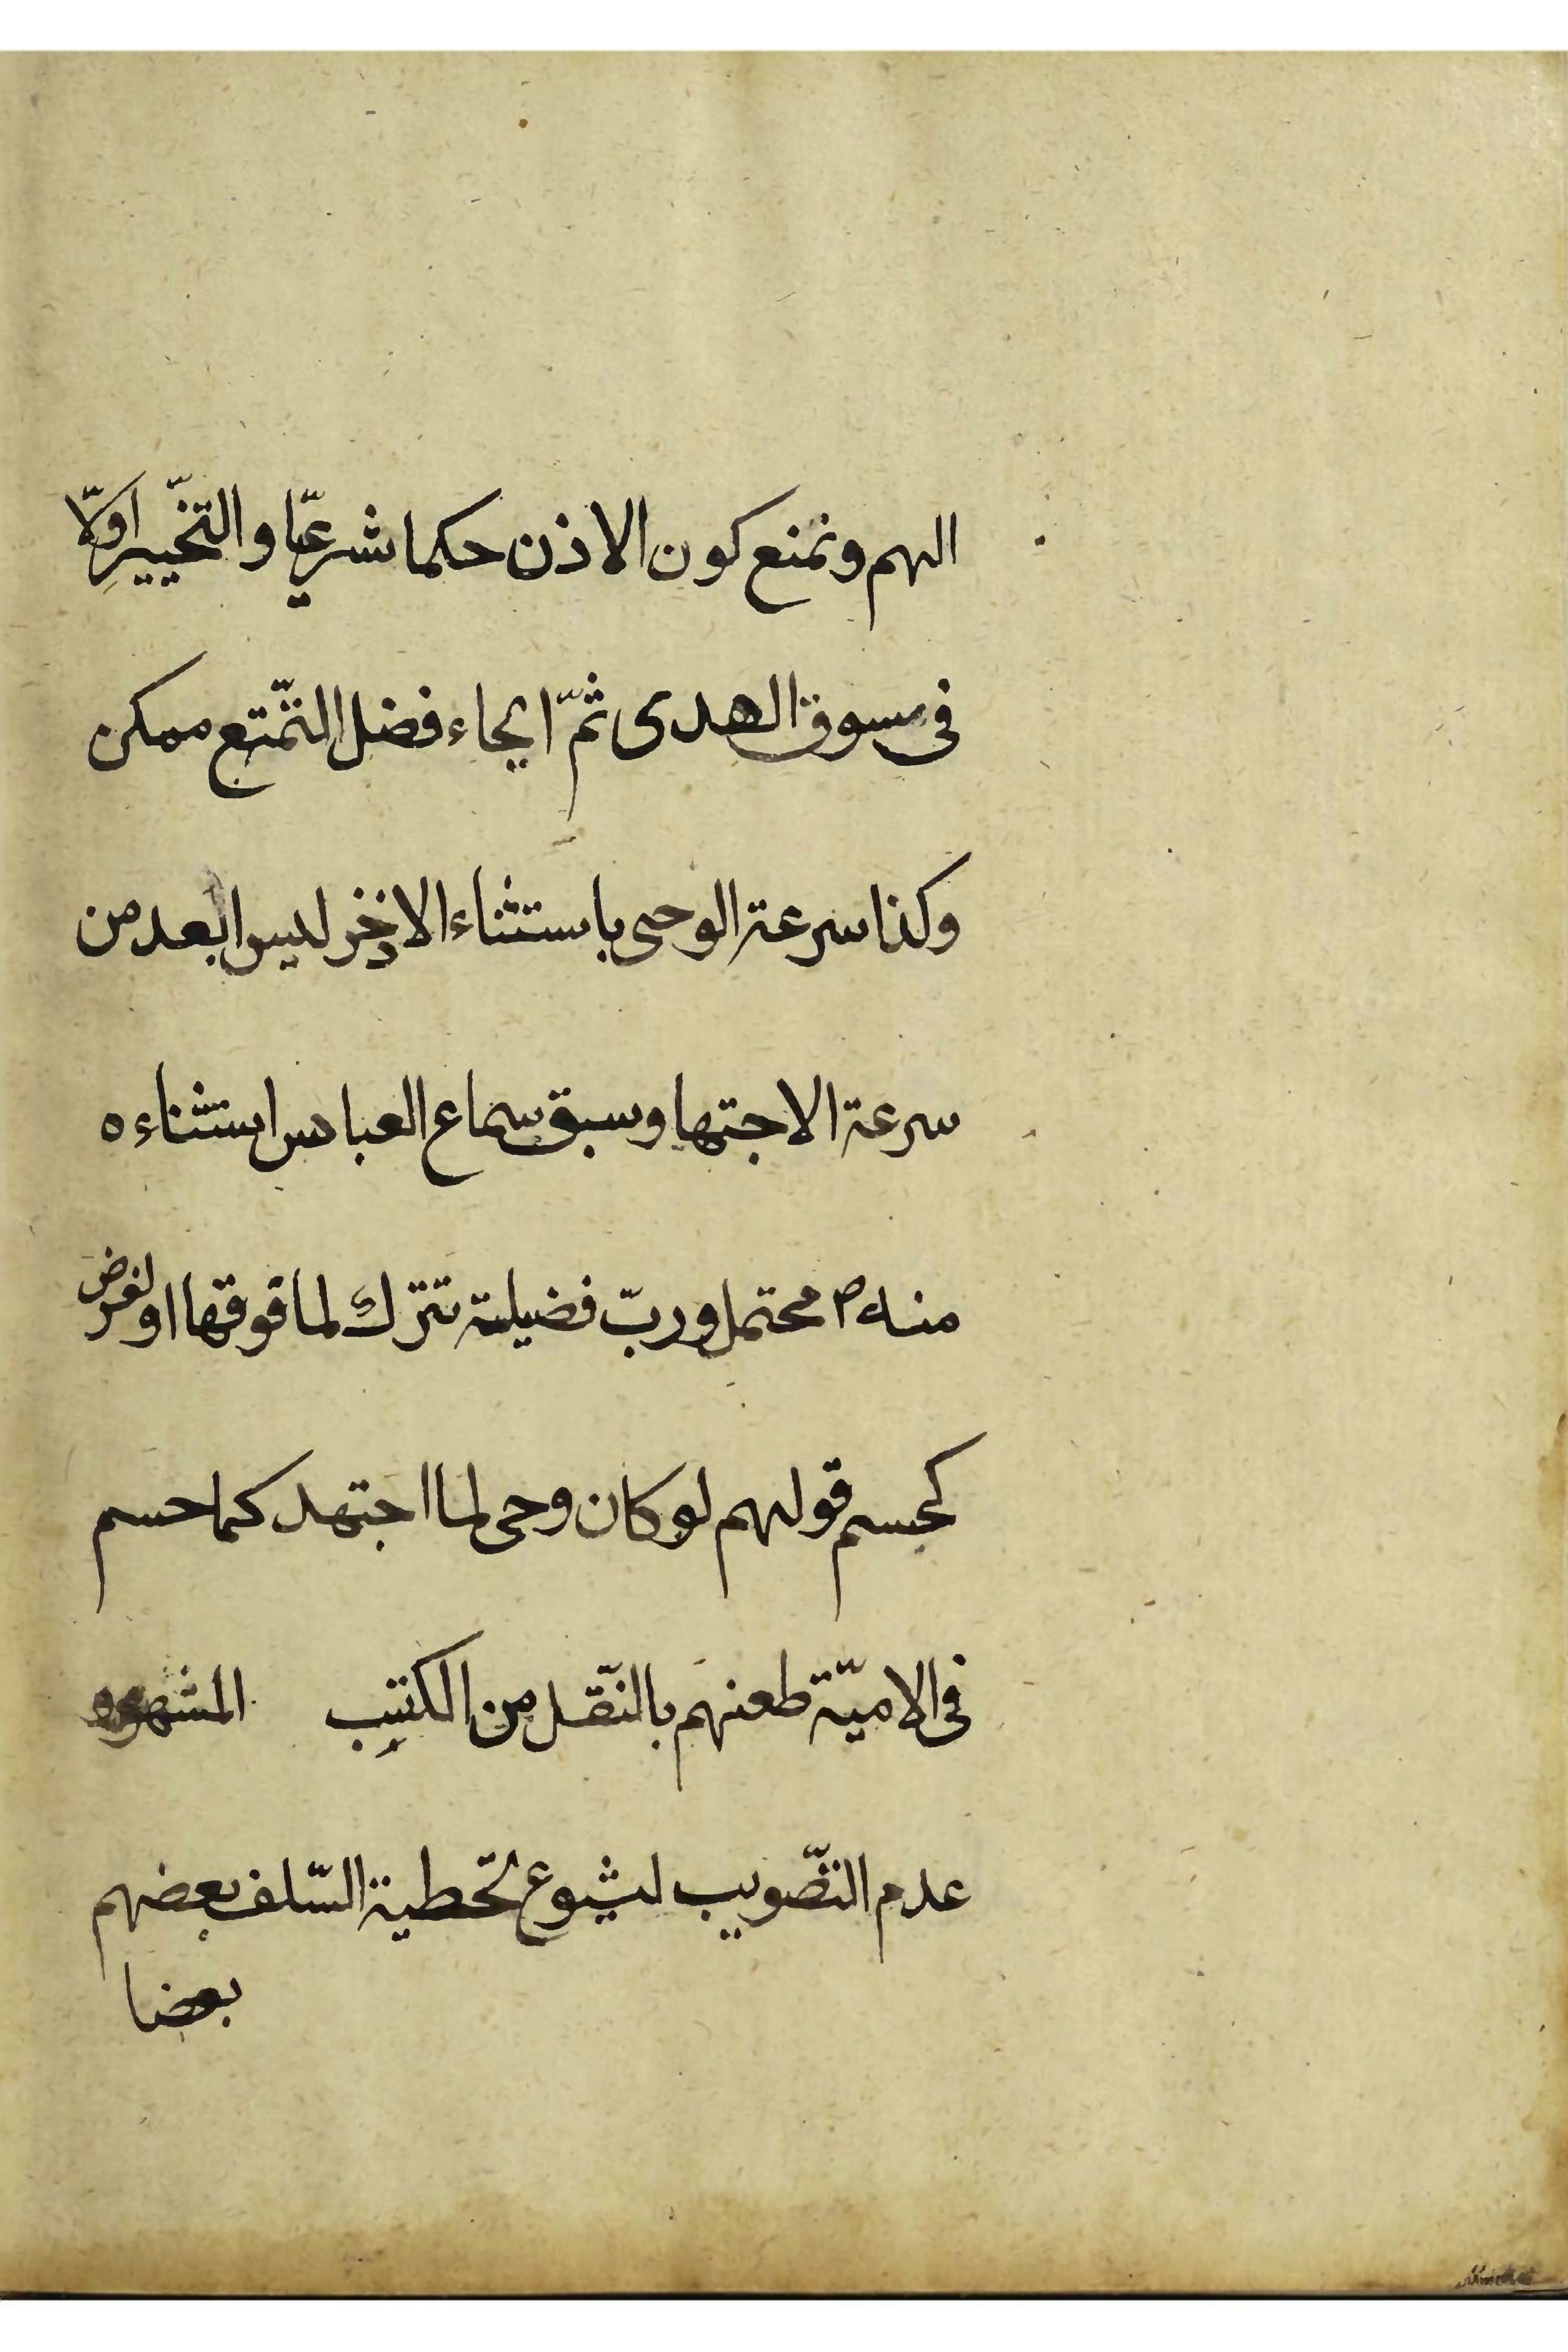 الهم ونمنع كون الاذن حكما شرعيّا والتخّيير اوّلا
فى سوق الهدى ثمّ ايحاء فضل التمّتع ممكن
وكذا سرعة الوحى باستثناء الاذخر ليس ابعد من
سرعة الاجتها وسبق سماع العباس استثناءه
منه ص محتمل وربّ فضيلة تترك لما فوقها او لغرض
كحسم قولهم لو كان وحى لما اجتهد كما حسم
فى الاميّة طعنهم بالنّقل من الكتب المشهور
عدم التّصويب لشيوع تخطية السّلف بعضهم
بعضا